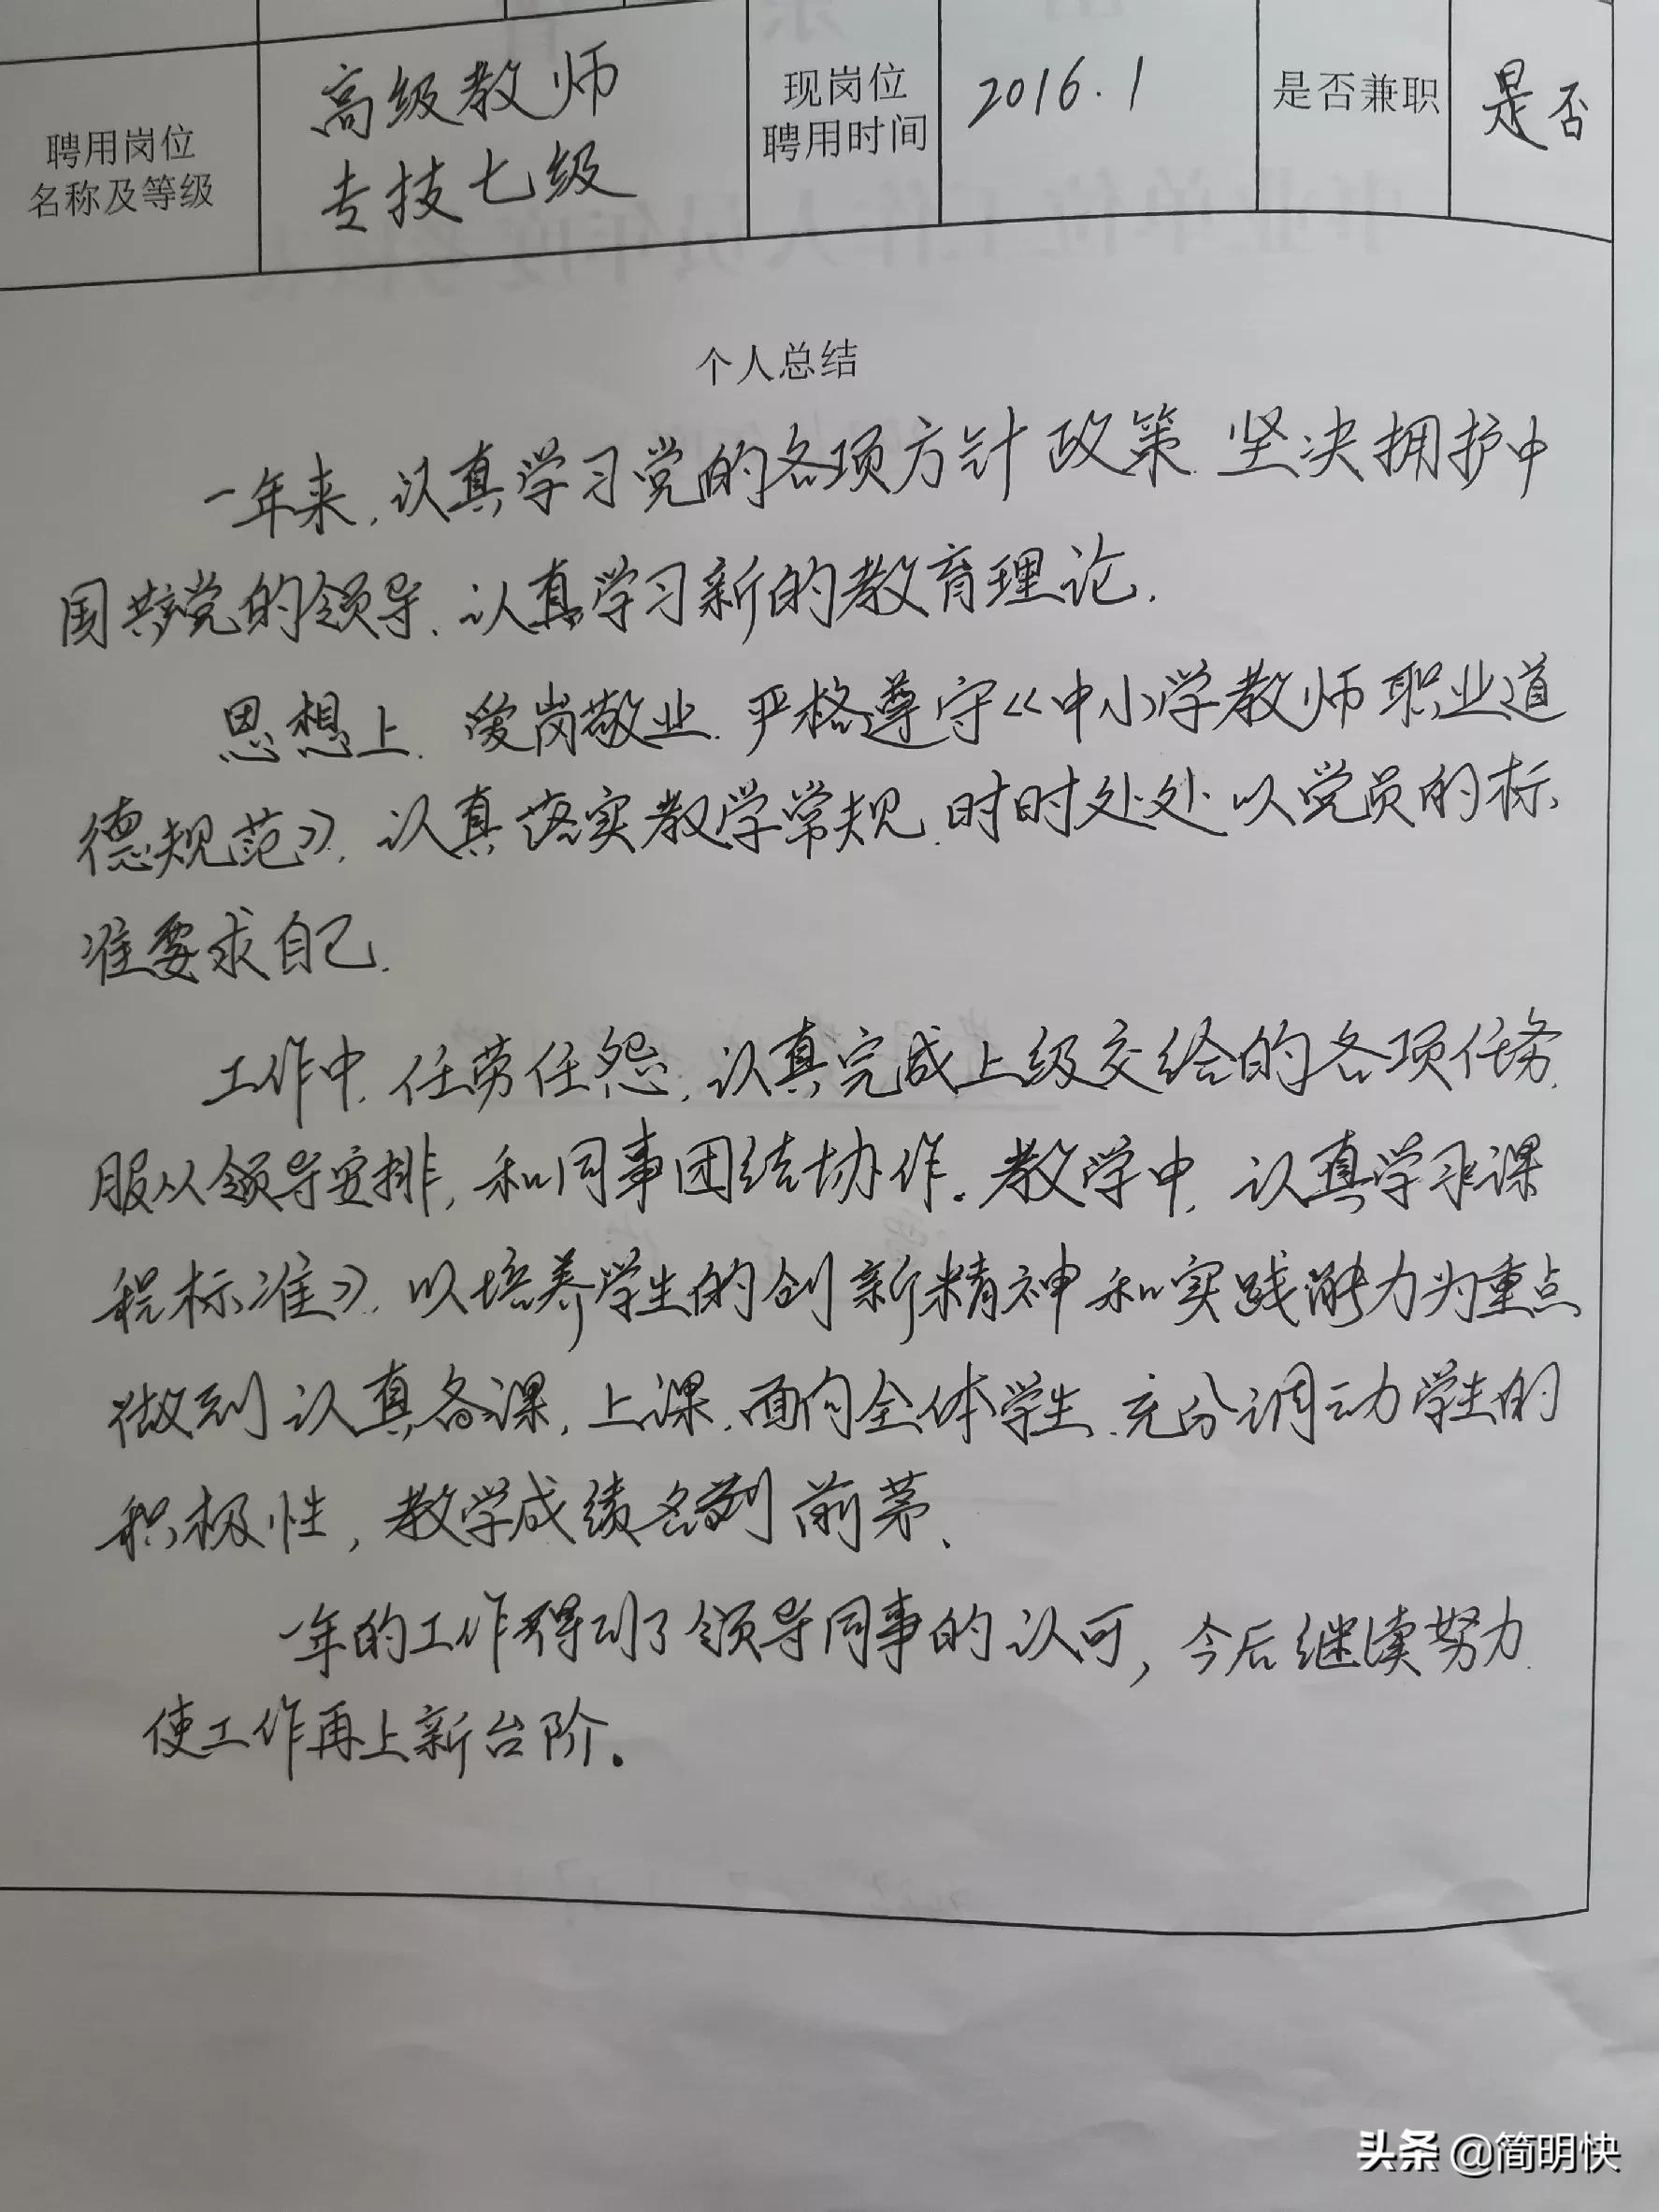 聘用岗位
名称及等级
高级教师
专技七级
现岗位
聘用时间
2016.1
是否兼职
是否
个人总结
一年来,认真学习党的各项方针政策.坚决拥护中
国共产党的领导.认真学习新的教育理论.
思想上.爱岗敬业.严格遵守《中小学教师职业道
德规范》.认真落实教学常规.时时处处以党员的标
准要求自己.
工作中.任劳任怨,认真完成上级交给的各项任务.
服从领导安排,和同事团结协作.教学中,认真学习课
程标准》.以培养学生的创新精神和实践能力为重点
做到认真备课,上课.面向全体学生.充分调动学生的
积极性,教学成绩名列前茅、
一年的工作得到了领导同事的认可,今后继续努力.
使工作再上新台阶.
头条 @简明快